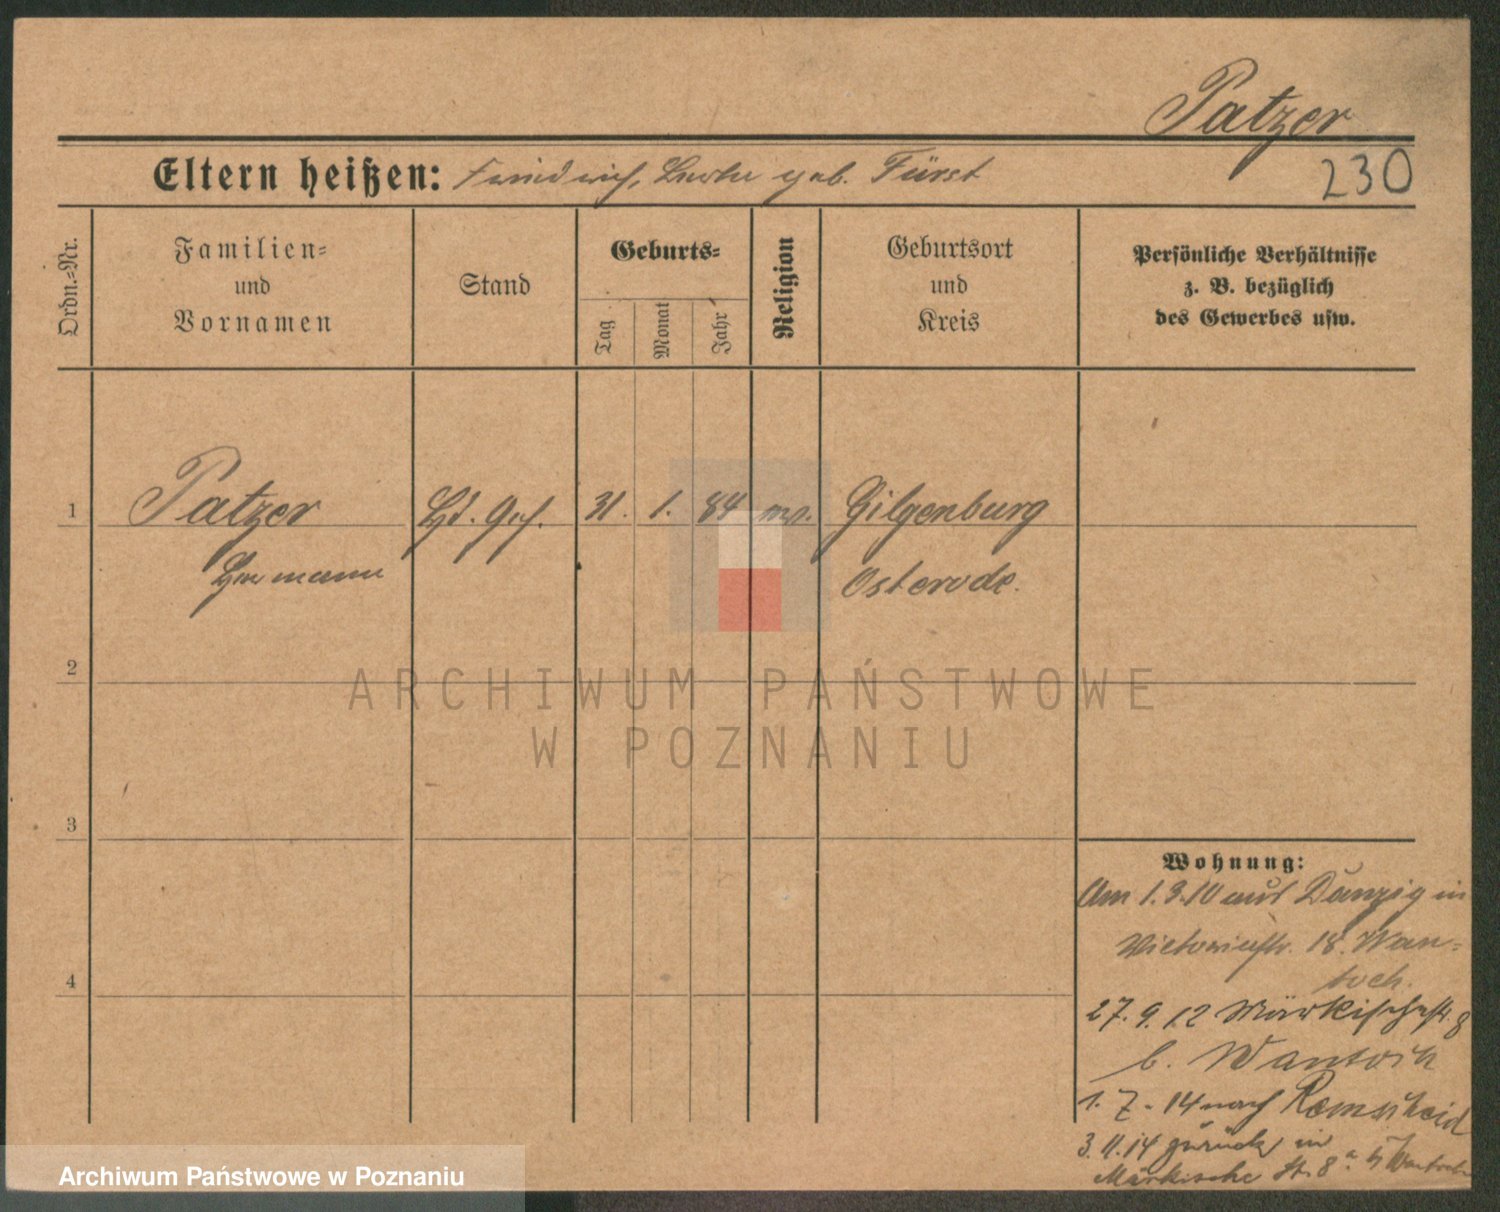 Patzer
230
Eltern heißen: Friedrich, geb. Fürst
Ordn.-Nr.
Familien-
und
Vornamen
Stand
Geburts-
Tag
Monat
Jahr
Religion
Geburtsort
und
Kreis
Persönliche Verhältnisse
z. B. bezüglich
des Gewerbes usw.
1
Patzer
31. 1. 84
Gilgenburg
Hermann
Osterode.
2
ARCHIWUM PAŃSTWOWE
W POZNANIU
3
Wohnung:
Am 1.3.10 aus Danzig in
Victoriastr. 18. Wan-
toch.
4
27. 9. 12 Märkischestr. 8
b. Wantoch
1. 7. 14 nach Remscheid
3. 11. 14 zurück in
Märkische St. 8 Wantoch
Archiwum Państwowe w Poznaniu